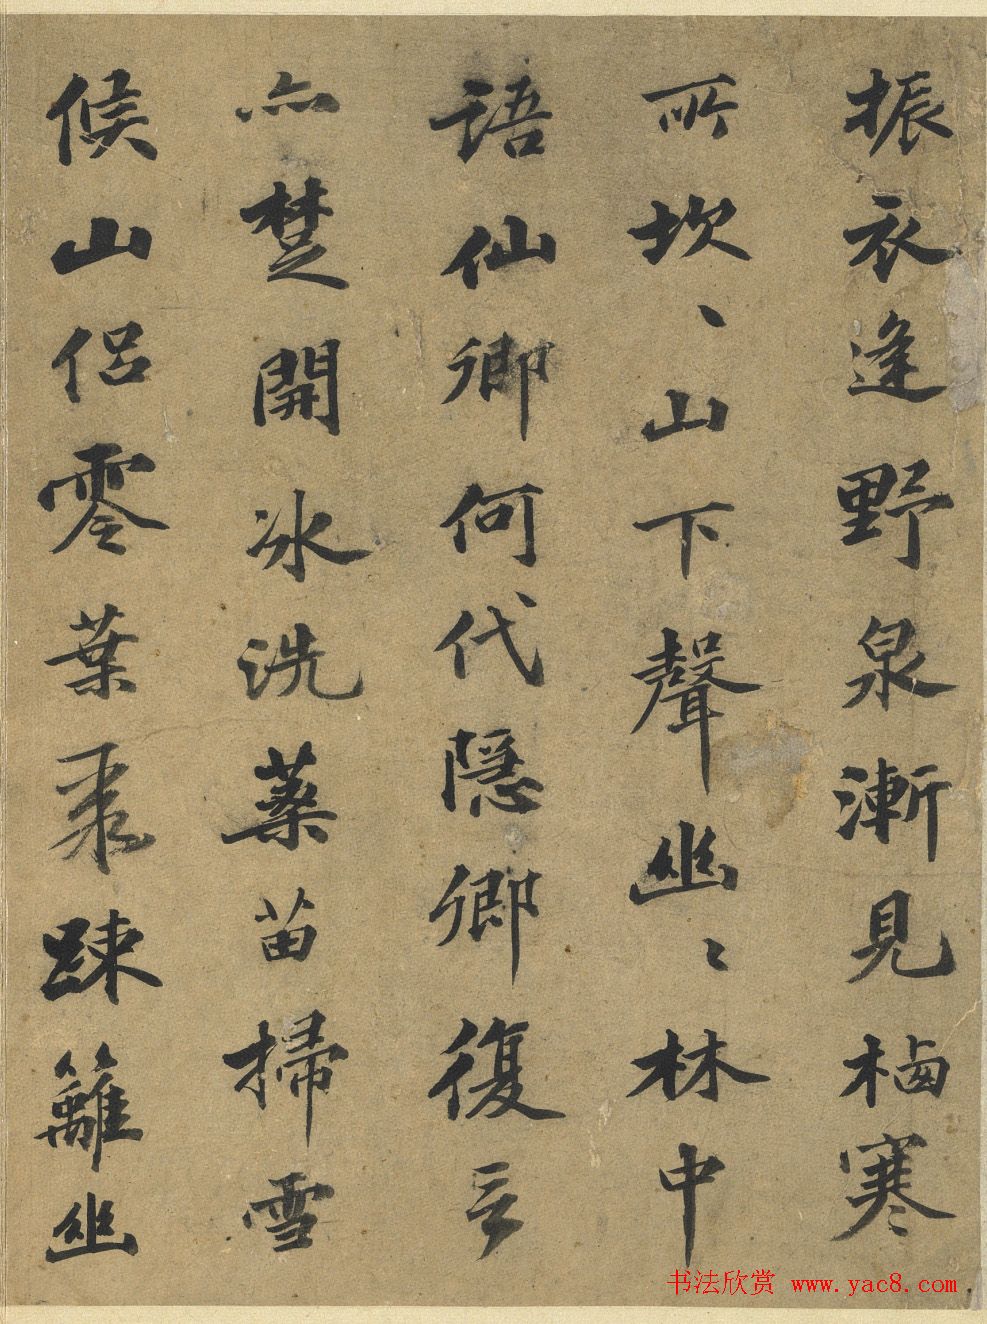 振衣逢野泉漸見栖寒
所坎、山下聲幽、林中
語仙鄉何代隱鄉復言
亦楚開冰洗藥苗掃雪
候山侶零葉聚疎籬幽
书法欣赏 www.yac8.com